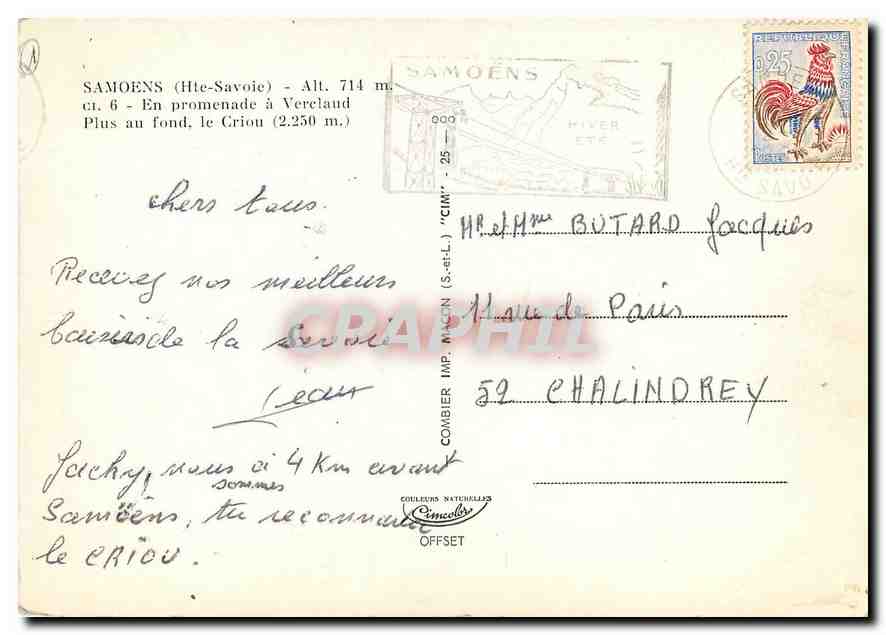 SAMOENS (Hte-Savoie) - Alt. 714 m.
CI. 6 - En promenade à Verclaud
Plus au fond, le Criou (2.250 m.)
SAMOËNS
HIVER
ÉTÉ
RÉPUBLIQUE FRANÇAISE
0,25
POSTES
Hte SAVOIE
chers tous.
Recevez nos meilleurs
baisers de la Savoie
Jean
Jacky, nous sommes à 4 Km avant
Samoëns, tu reconnaitra
le CRIOU.
COMBIER IMP. MACON (S.-et-L.) "CIM" - 25 - 000
Mr et Mme BUTARD Jacques
11 rue de Paris
52 CHALINDREY
COULEURS NATURELLES
Cimcolor
OFFSET
CPAPHIL
1